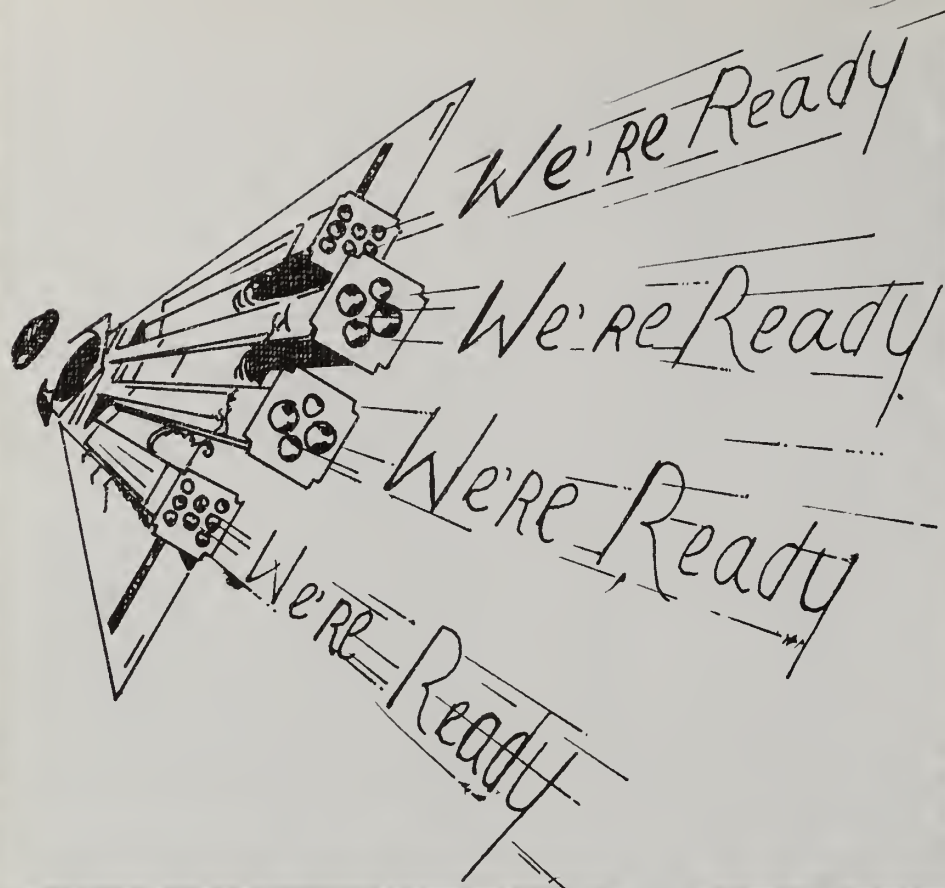 We're Ready
We're Ready
We're Ready
We're Ready